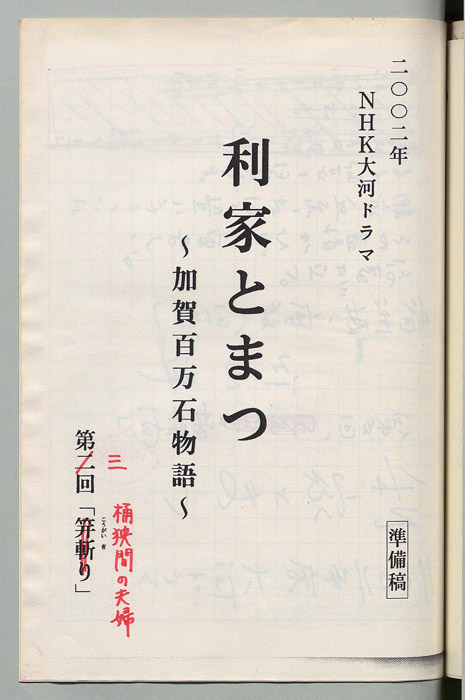 二〇〇二年
NHK大河ドラマ
利家とまつ
～加賀百万石物語～
準備稿
第二回「笄斬り」
こうがい ぎ
三
桶狭間の夫婦